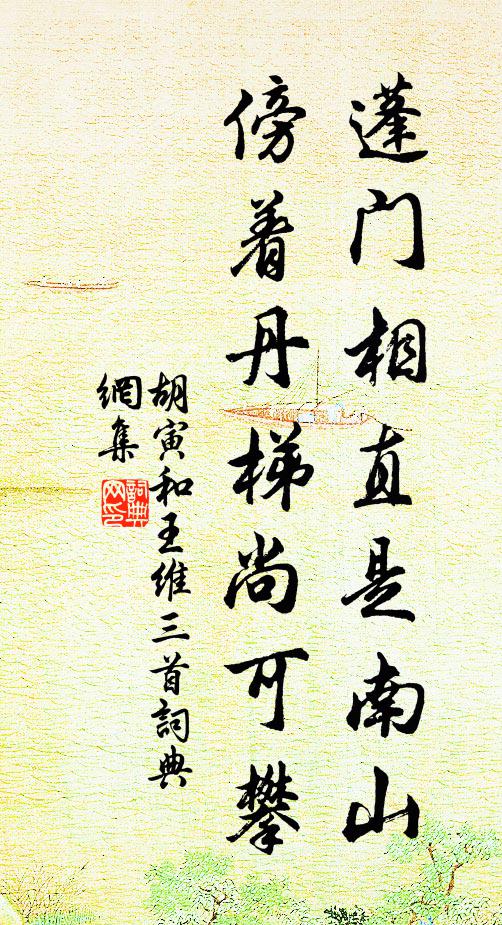 蓬门相直是南山
傍着丹梯尚可攀
胡寅和王维三首词典
网集
词典网印